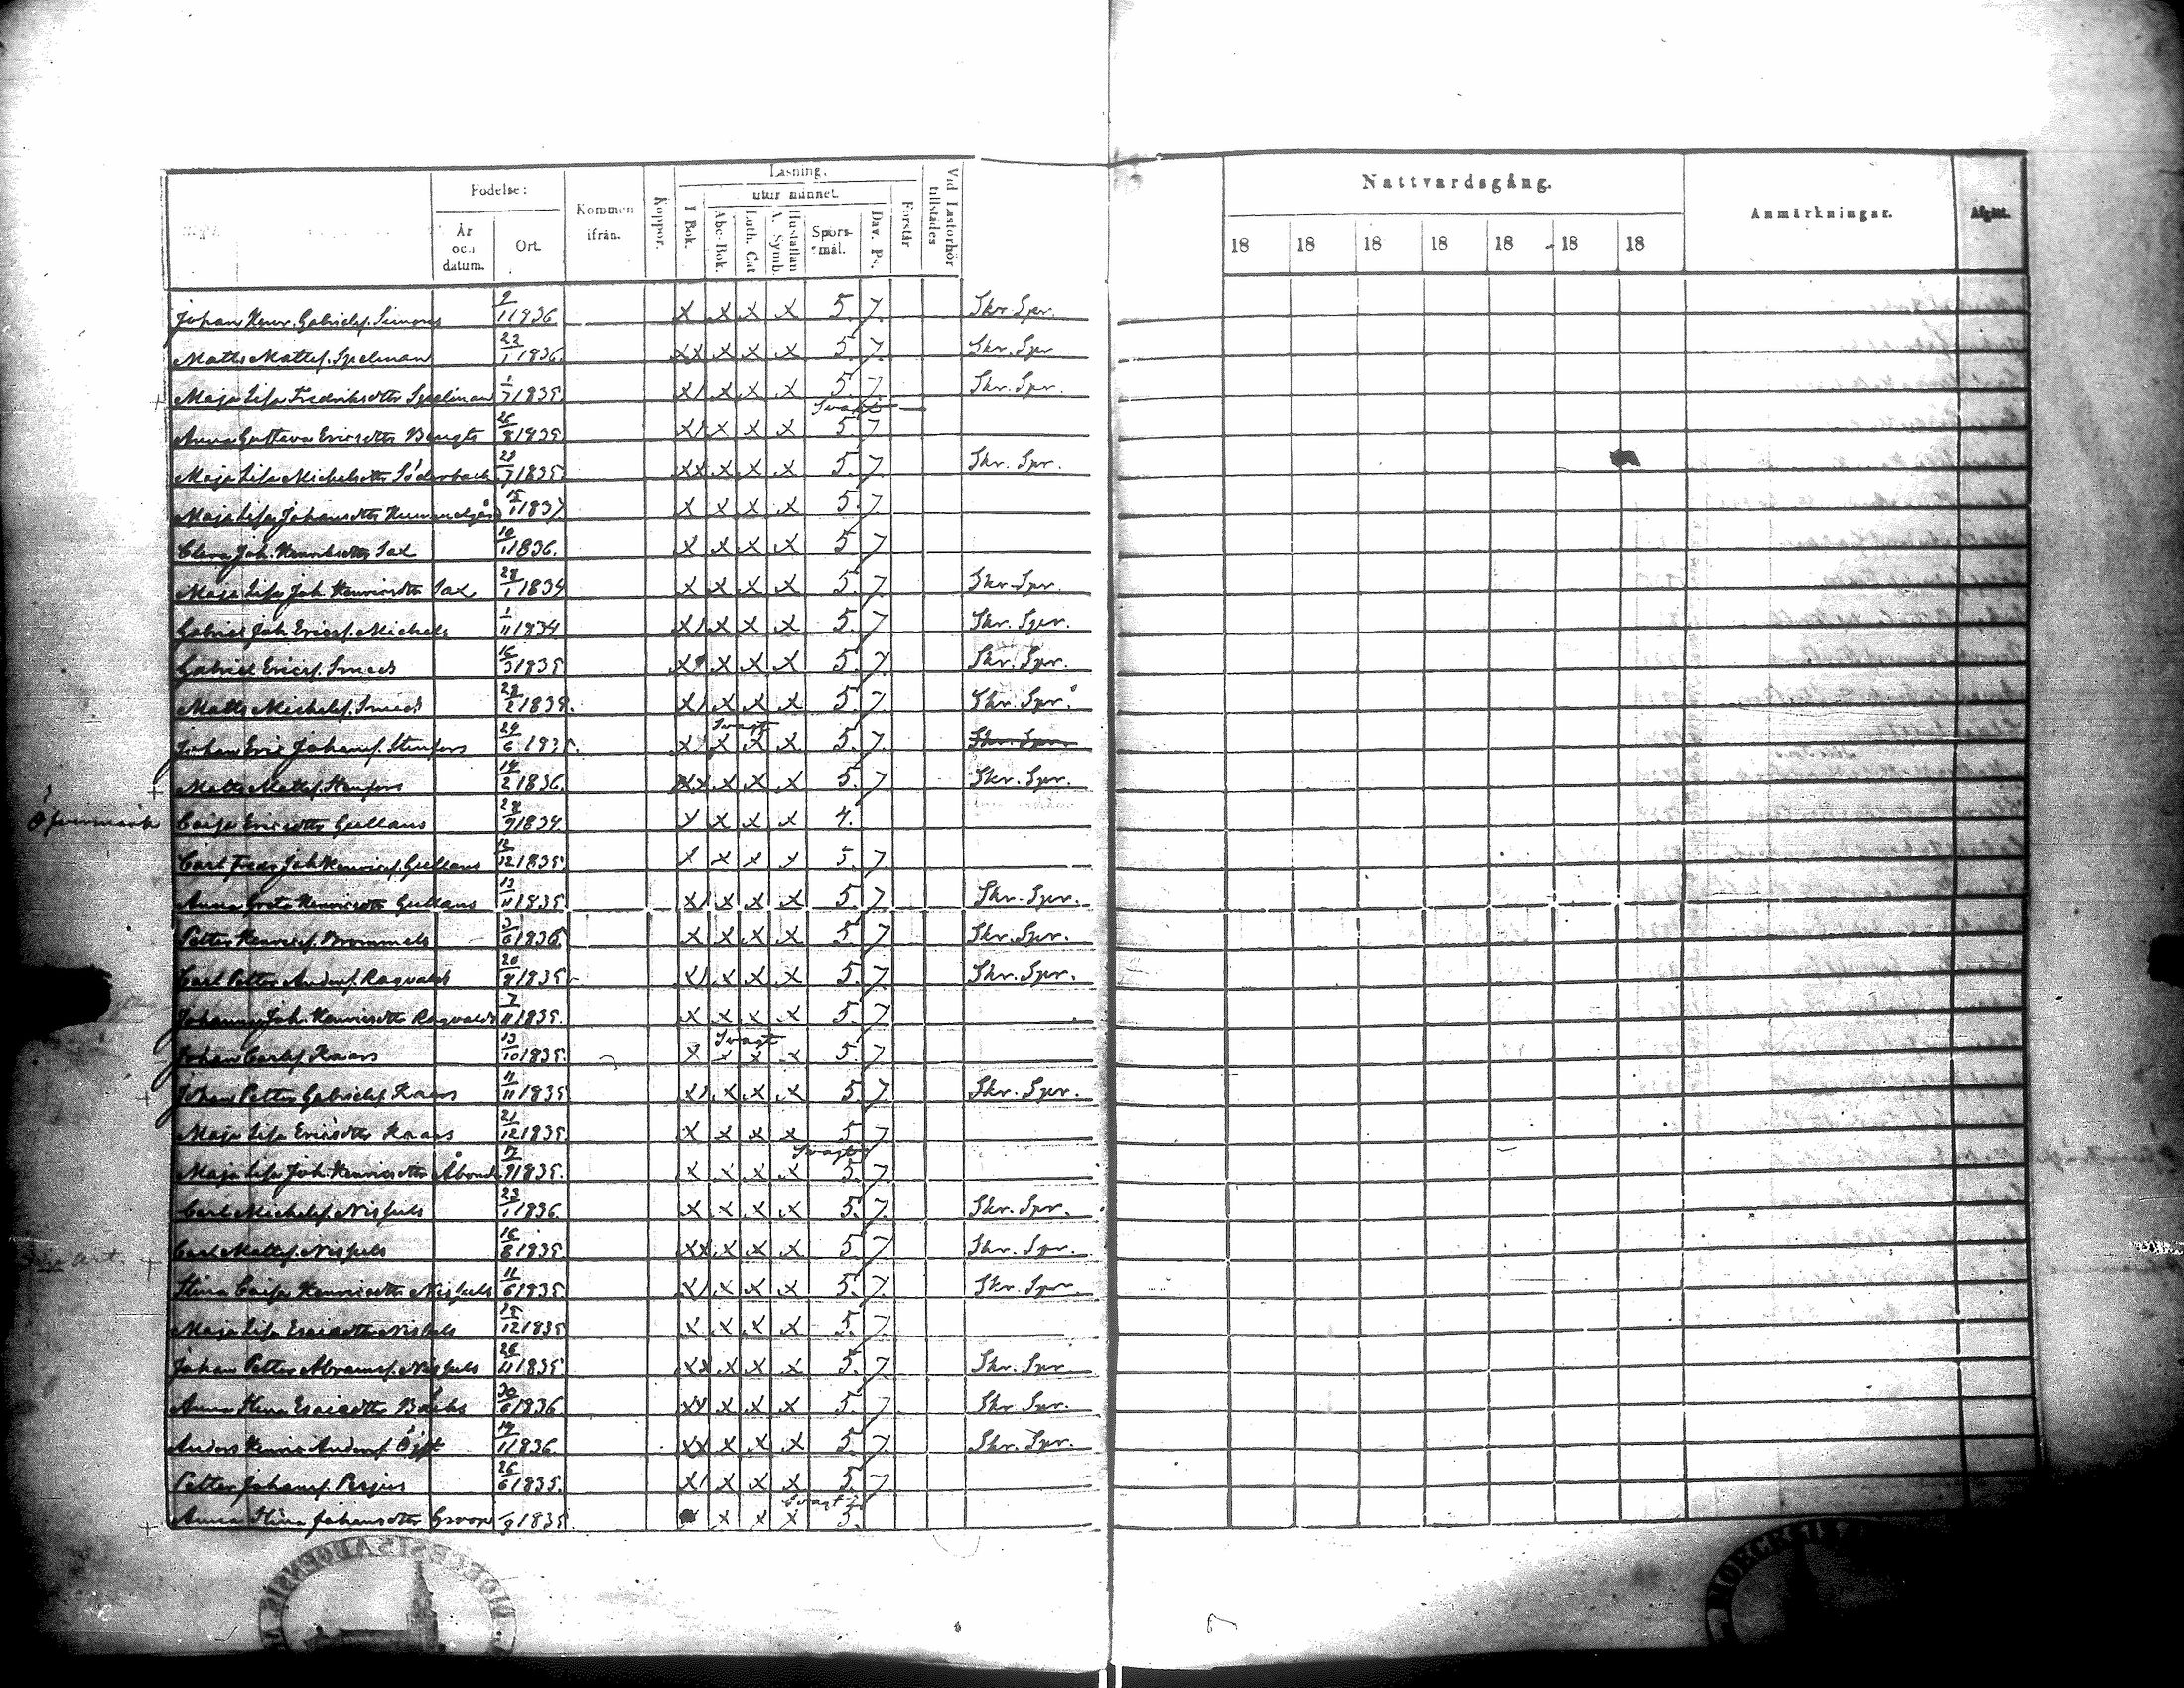 Födelse:
Kommen ifrån.
Koppor.
Läsning.
utur minnet.
År och datum.
Ort.
I Bok.
Abc-Bok.
Luth. Cat
Hustaflan A. Symb.
Spörs-mål.
Dav. Ps.
Förstår
Vid Läsförhör tillstädes
Nattvardsgång.
18 18 18 18 18 18 18
Anmärkningar.
Afgått.
Johan Henr. Gabrielss. Simons 9/1 1936 x x x x 5. 7. Skr. Spr.
Matts Mattss. Spelman 23/1 1836. xx x x x 5 7. Skr. Spr
Maja Lisa Fredriksdtr Spelman 1/7 1835. x x x x 5. 7. Skr. Spr.
Svagt
Anna Gustava Ericsdtr Bengts 26/8 1935 x x x x 5. 7
Maja Lisa Michelsdtr Söderback 23/7 1835 xx x x x 5. 7. Skr. Spr.
Maja Lisa Johansdtr 15/1 1837 x x x x 5. 7
Clara Joh. Henricsdtr Sax 10/1 1836. x x x x 5 7.
Maja Lisa Joh Henricsdtr Sax 28/1 1834 x x x x 5. 7. Skr. Spr.
Gabriel Joh Ericss. Michels 1/11 1834 x x x x 5. 7. Skr. Spr.
Gabriel Ericss. Smeds 15/3 1835 x x x x 5. 7. Skr. Spr.
Matts Michelss. Smeds 28/2 1839. x x x x 5 7. Skr. Spr.
Svagt
Johan Eric Johanss. Stenfors 24/6 1935. x x x x 5. 7. Skr. Spr.
Matts Mattss. Stenfors 14/2 1836. xx x x x 5. 7 Skr. Spr.
Öfvermark Caisa Ericsdtr Gullans 28/7 1834. x x x x 4.
Carl Fredr Joh Henricss. Gullans 12/12 1835. x x x x 5. 7.
Anna Greta Henricsdtr Gullans 13/11 1835 x x x x 5. 7 Skr. Spr.
Petter Henricss. Brommels 3/6 1836 x x x x 5 7 Skr. Spr.
Carl Petter Anderss. Ragvalds 20/8 1835 x x x x 5. 7 Skr. Spr.
Johanna Joh. Henricsdtr Ragvalds 7/11 1835. x x x x 5. 7
Svagt
Johan Carlss. Knaas 13/10 1835. x x x x 5. 7
Johan Petter Gabrielss. Knaas 11/11 1835 x x x x 5 7. Skr. Spr.
Maja Lisa Ericsdtr Knaas 21/12 1835 x x x x 5 7.
Svagt
Maja Lisa Joh. Henricsdtr Åbonde 17/9 1835. x x x x 5. 7
Carl Michelss. Nissfuls 23/1 1836. x x x x 5. 7 Skr. Spr.
Carl Mattss. Nissfuls 16/8 1835. xx x x x 5. 7 Skr. Spr.
Stina Caisa Henricsdtr Nissfuls 11/6 1835. x x x x 5. 7. Skr. Spr.
Maja Lisa Esaiasdtr Nissfuls 25/12 1835 x x x x 5. 7
Johan Petter Abramss. Nissfuls 28/11 1835 xx x x x 5. 7 Skr. Spr
Anna Stina Esaiasdtr Backs 30/6 1836. xx x x x 5 7 Skr Spr.
Anders Henric Anderss. Öijst 14/1 1836. xx x x x 5. 7. Skr. Spr.
Petter Johanss. Persjus 26/6 1835. x x x x 5. 7
Svagt
Anna Stina Johansdtr Groop /9 1835. x x x 5.